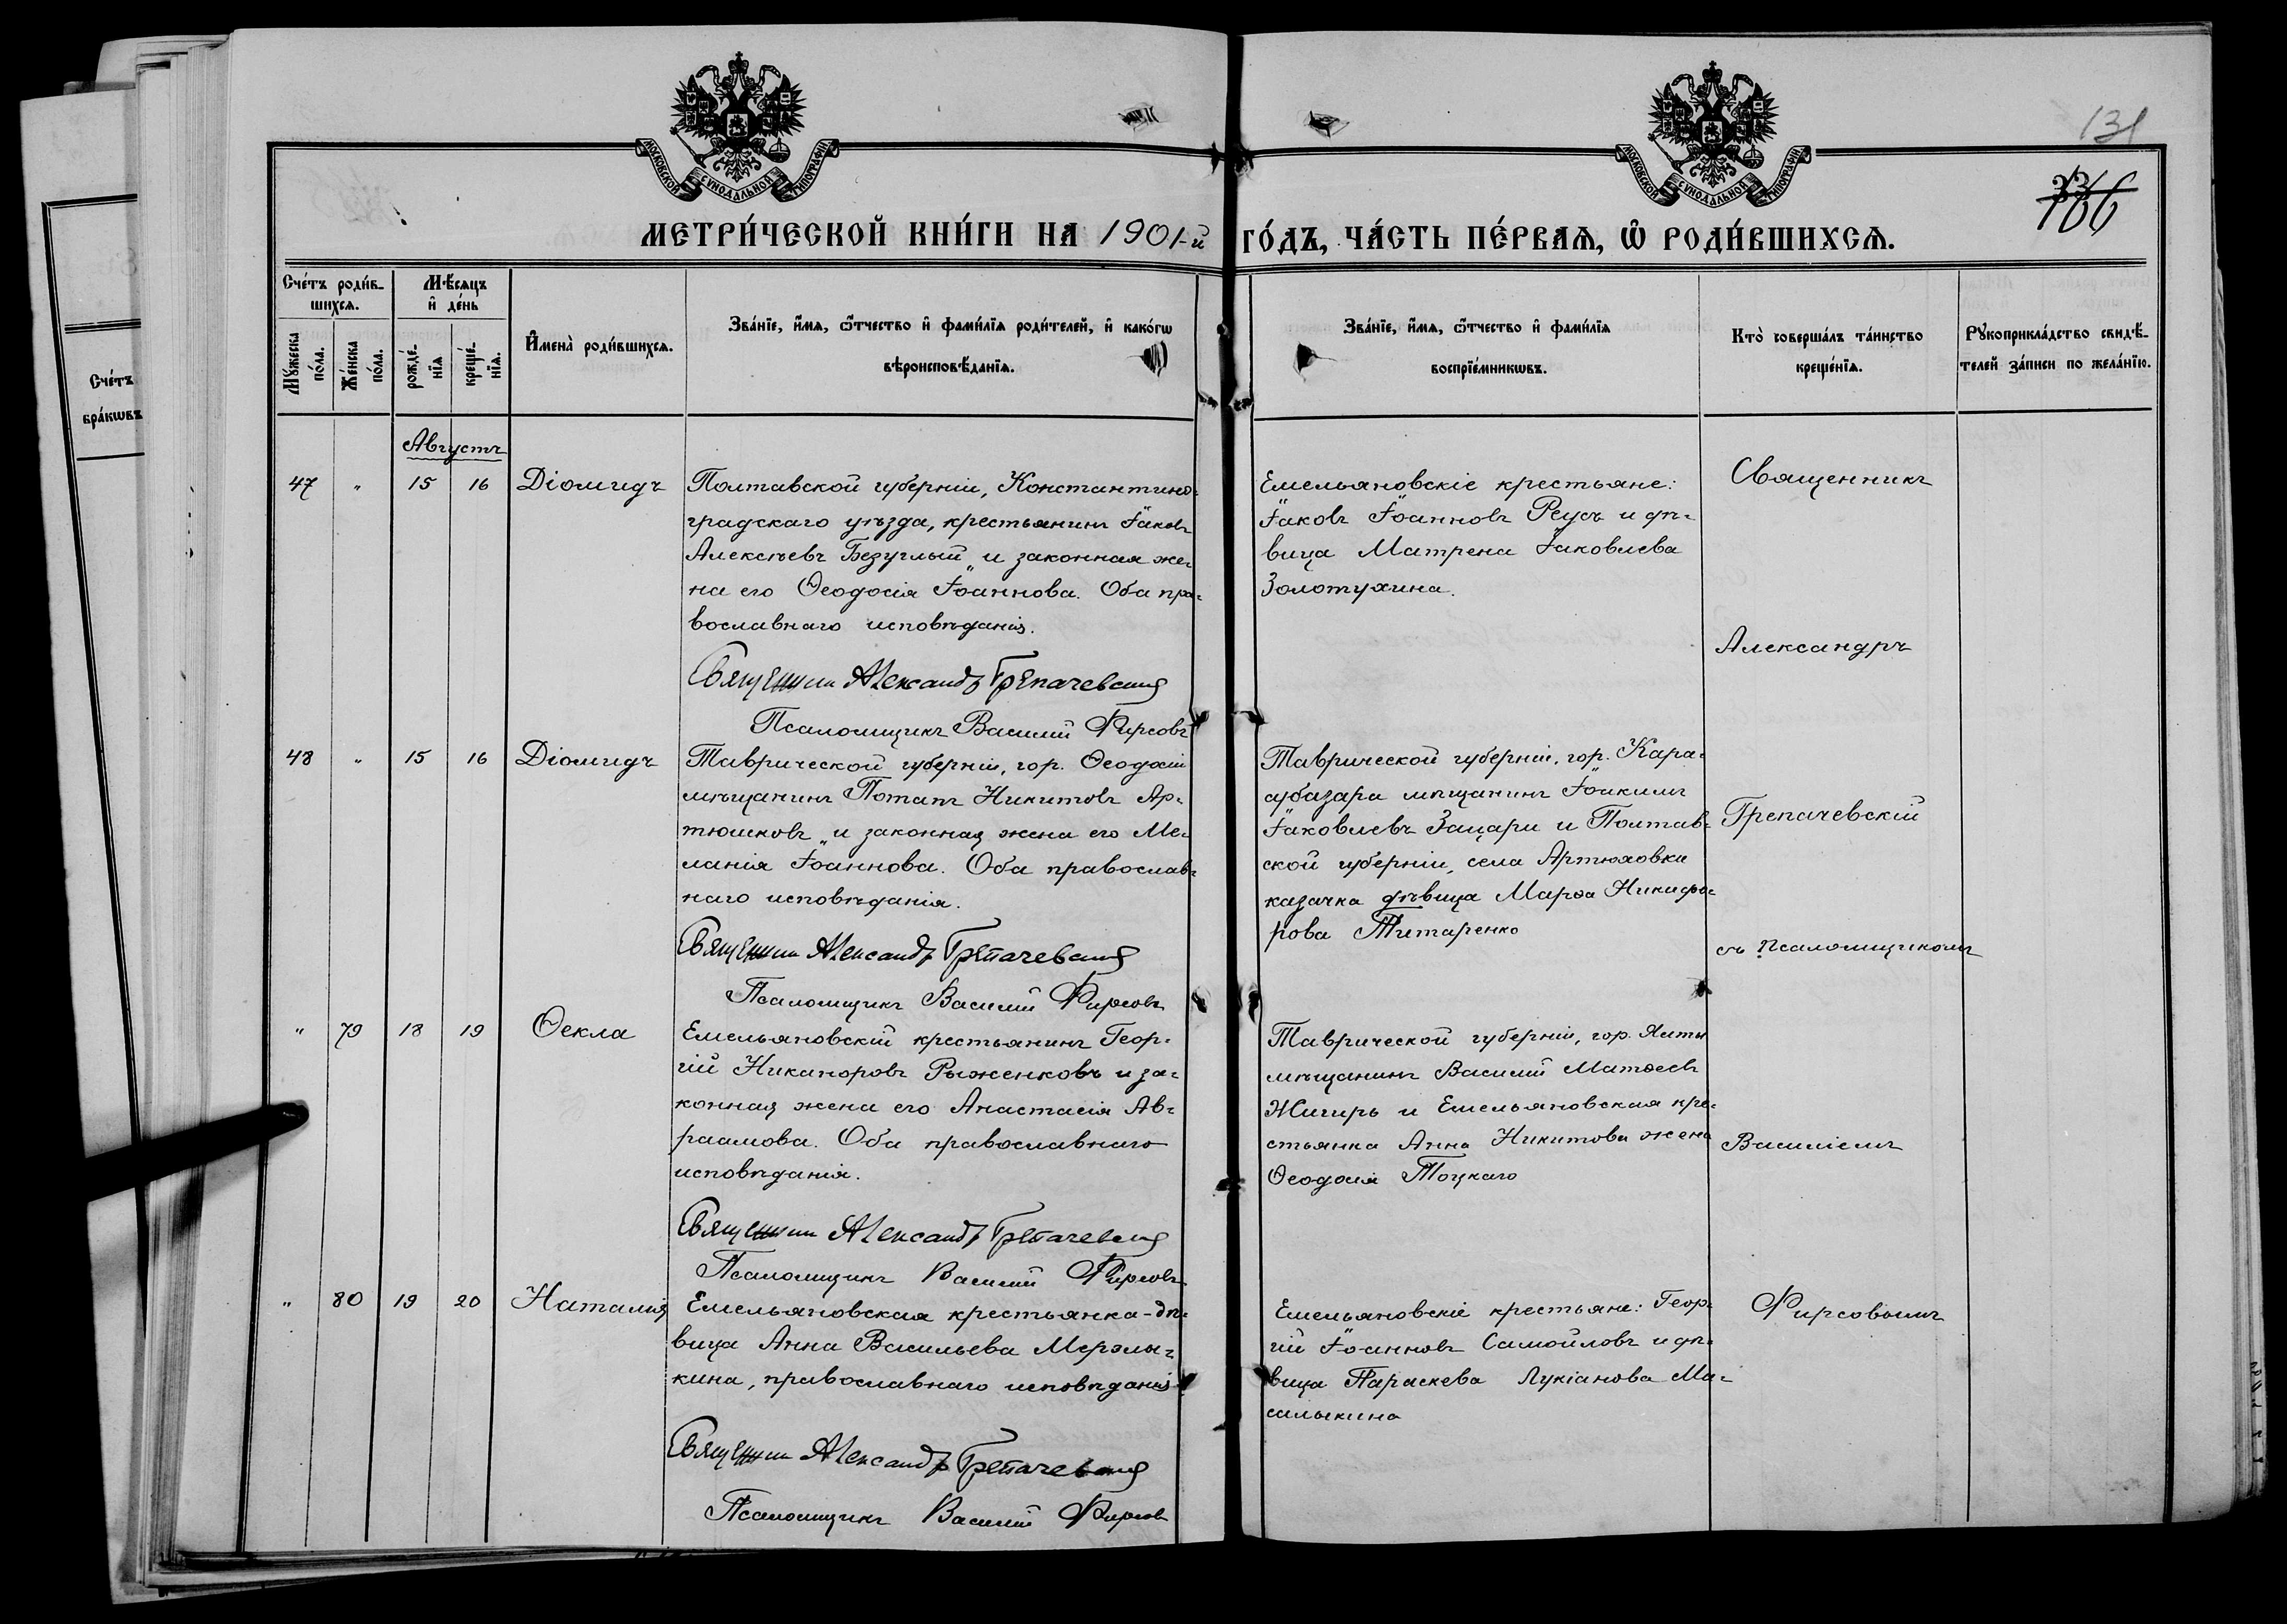 131
166
МОСКОВСКОЙ СѴНОДАЛЬНОЙ ТИПОГРАФІИ
МОСКОВСКОЙ СѴНОДАЛЬНОЙ ТИПОГРАФІИ
МЕТРИ́ЧЕСКОЙ КНИ́ГИ НА 1901-й ГО́ДЪ, ЧА́СТЬ ПЕ́РВАѦ, Ѡ҆ РОДИ́ВШИХСѦ.
Счéтъ
брáкѡвъ
Счéтъ роди́в-
шихсѧ.
Мꙋ́жеска
пóла.
Жéнска
пóла.
Мѣ́сѧцъ
и҆ дéнь
рождé-
нїѧ
крещé-
нїѧ.
И҆менà роди́вшихсѧ.
Звáнїе, и҆́мѧ, ѻ҆́тчество и҆ фами́лїѧ роди́телей, и҆ какóгѡ
вѣроисповѣ́данїѧ.
Звáнїе, и҆́мѧ, ѻ҆́тчество и҆ фами́лїѧ
воспрїéмникѡвъ.
Ктò совершáлъ тáинство
крещéнїѧ.
Рꙋкоприклáдство свидѣ́-
телей зáписи по желáнїю.
Августъ
47 " 15 16 Діомидъ
Полтавской губерніи, Константино-
градскаго уѣзда, крестьянинъ Іаковъ
Алексѣевъ Безуглый и законная же-
на его Ѳеодосія Іоаннова. Оба пра-
вославнаго исповѣданія.
Священник Александр Грепачевский
Псаломщикъ Василій Фирсовъ
Емельяновскіе крестьяне:
Іаковъ Іоанновъ Реусъ и дѣ-
вица Матрена Іаковлева
Золотухина.
48 " 15 16 Діомидъ
Таврической губерніи, гор. Ѳеодосіи
мѣщанинъ Потапъ Никитовъ Ар-
тюшковъ и законная жена его Ме-
ланія Іоаннова. Оба православ-
наго исповѣданія.
Священник Александр Грепачевский
Псаломщикъ Василій Фирсовъ
Таврической губерніи, гор. Кара-
субазара мѣщанинъ Іоакимъ
Іаковлевъ Зацари и Полтав-
ской губерніи, села Артюховки
казачка дѣвица Марѳа Никифо-
рова Титаренко
" 79 18 19 Ѳекла
Емельяновскій крестьянинъ Геор-
гій Никаноровъ Рыженковъ и за-
конная жена его Анастасія Ав-
раамова. Оба православнаго
исповѣданія.
Священник Александр Грепачевский
Псаломщикъ Василій Фирсовъ
Таврической губерніи, гор. Ялты
мѣщанинъ Василій Матѳеевъ
Жигирь и Емельяновская кре-
стьянка Анна Никитова жена
Ѳеодосія Тоцкаго
" 80 19 20 Наталия
Емельяновская крестьянка-дѣ-
вица Анна Васильева Мерзлы-
кина, православнаго исповѣданія.
Священник Александр Грепачевский
Псаломщикъ Василій Фирсов
Емельяновскіе крестьяне: Геор-
гій Іоанновъ Самойловъ и дѣ-
вица Параскева Лукіанова Ма-
салыкина
Священникъ
Александръ
Грепачевскій
съ псаломщикомъ
Василіемъ
Фирсовымъ